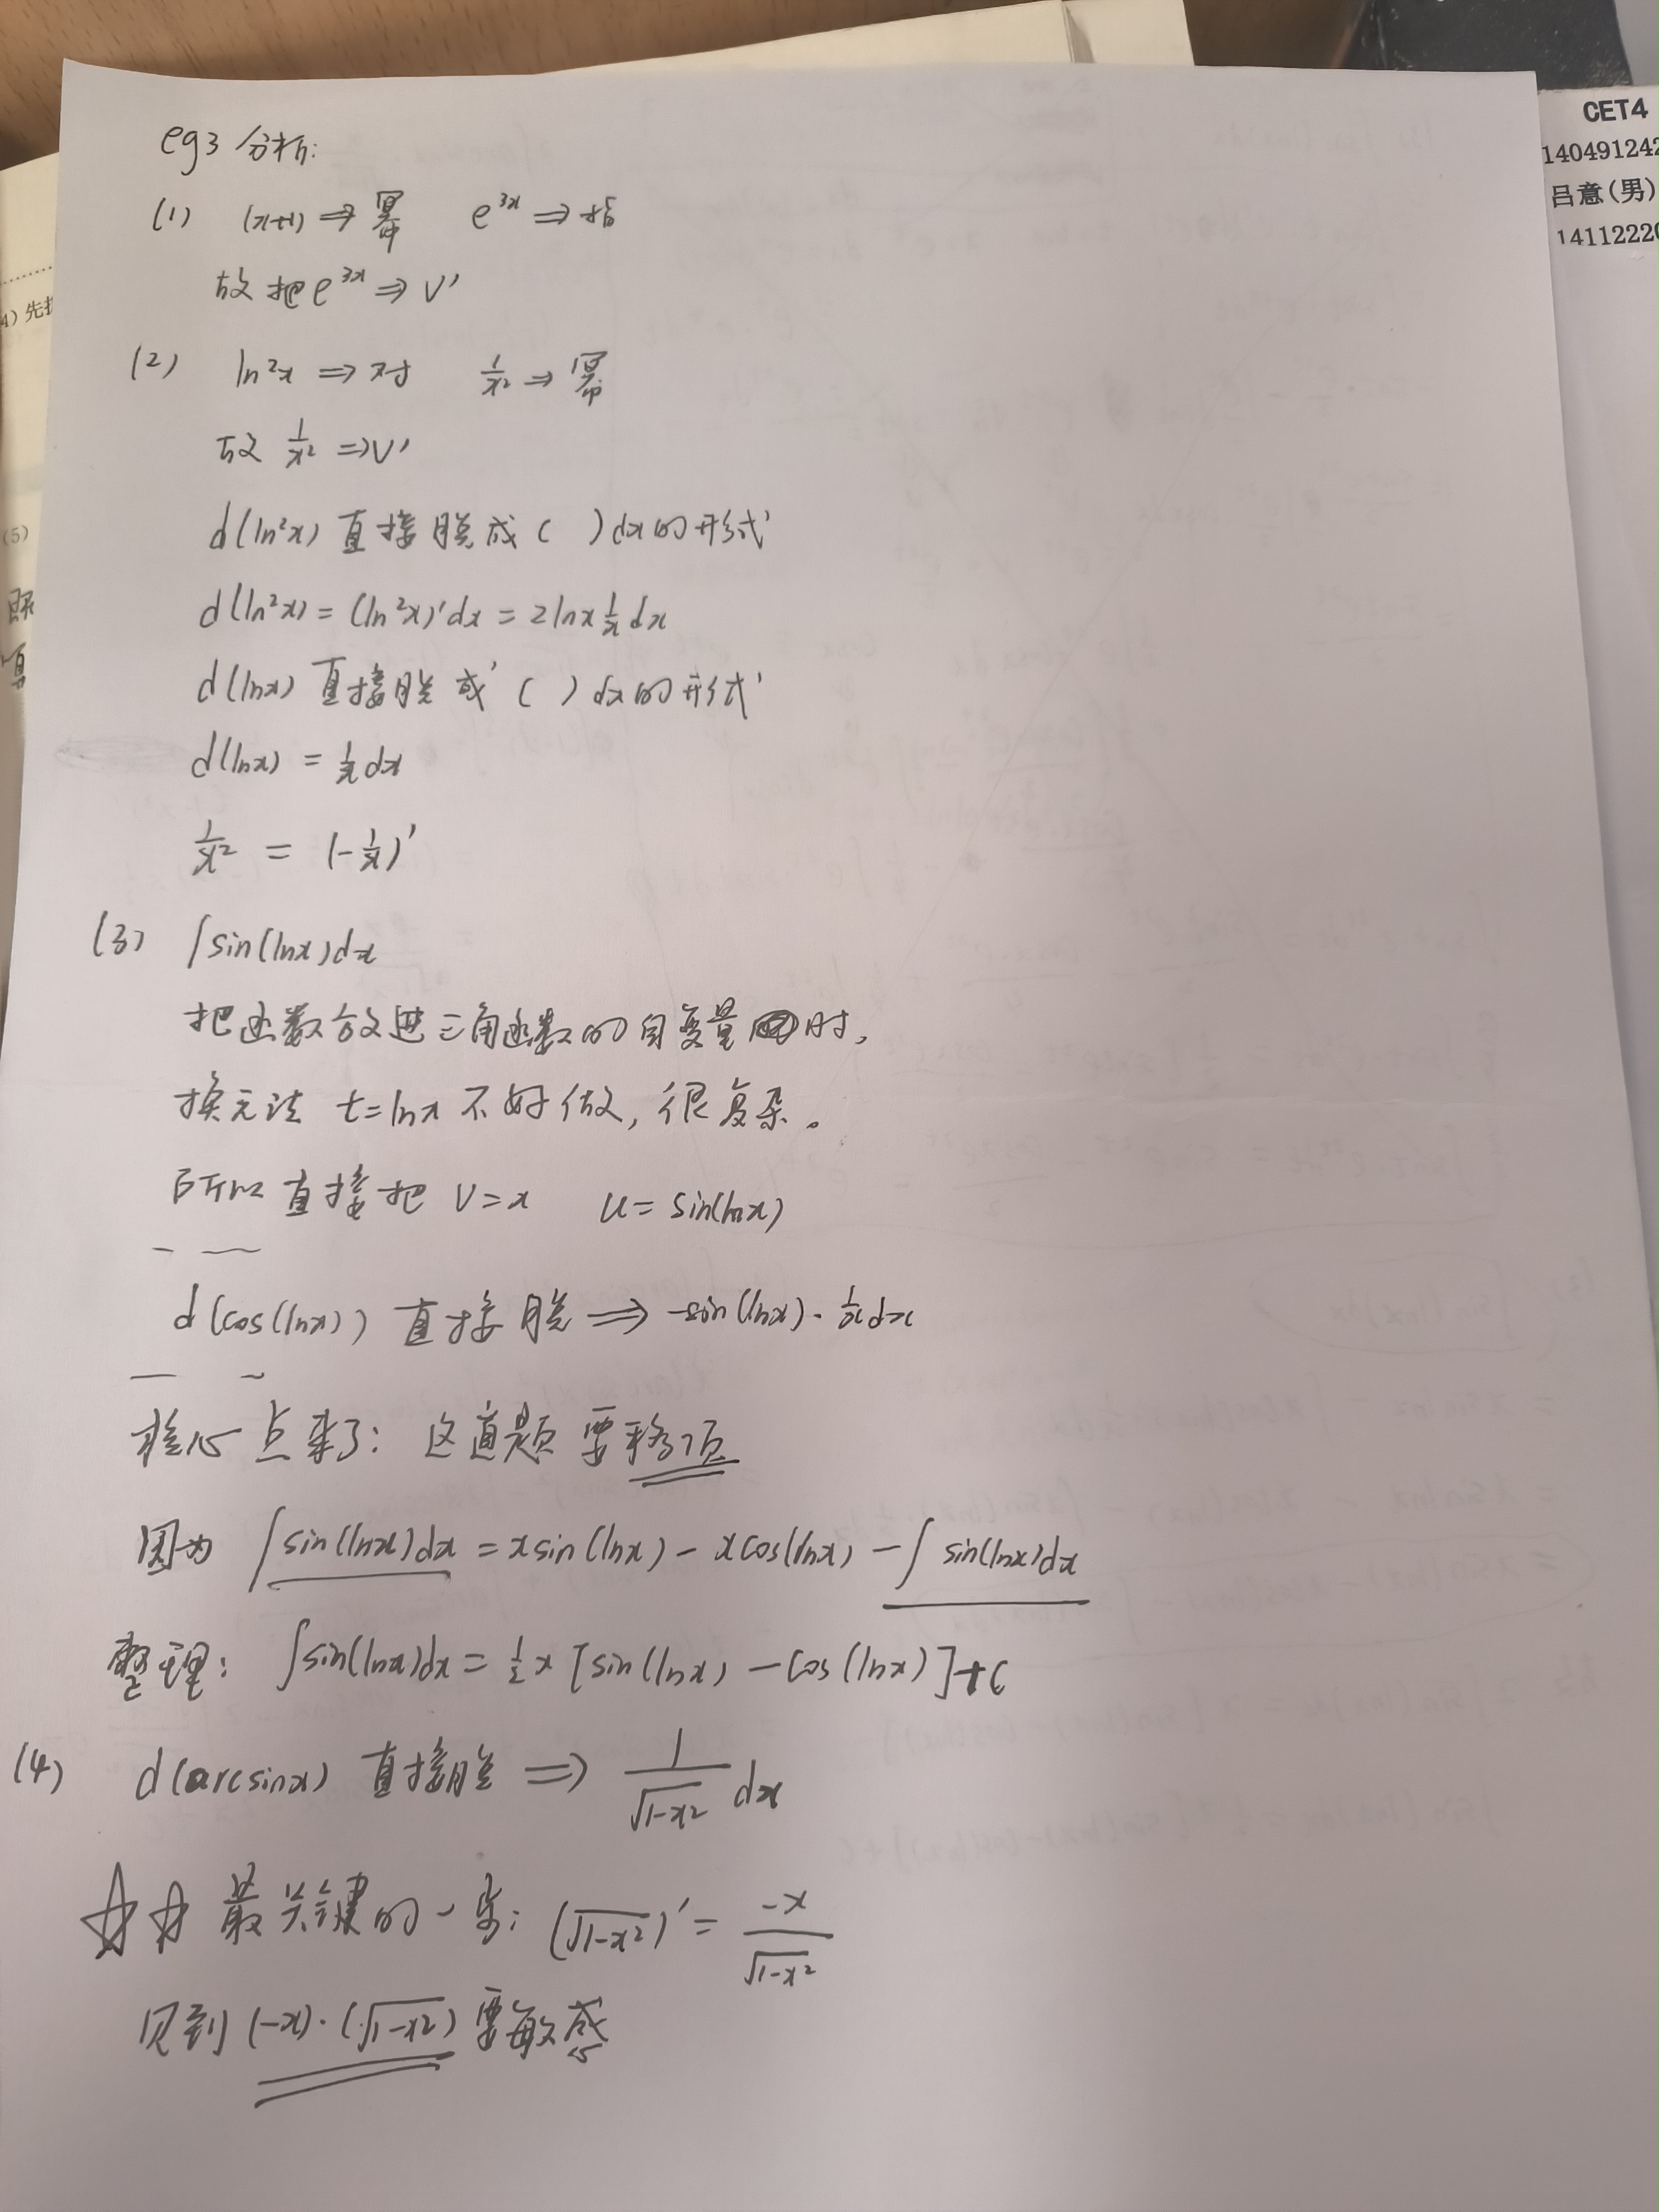 CET4
140491242
吕意(男)
14112220
4) 先
(5)
eg3 分析:
(1) (x+1) ⇒ 幂 e^{3x} ⇒ 指
故把 e^{3x} ⇒ V'
(2) ln²x ⇒ 对 1/x² ⇒ 幂
故 1/x² ⇒ V'
d(ln²x) 直接脱成 ( ) dx的形式
d(ln²x) = (ln²x)'dx = 2lnx 1/x dx
d(lnx) 直接脱成 ( ) dx的形式
d(lnx) = 1/x dx
1/x² = (-1/x)'
(3) ∫sin(lnx)dx
把函数放进三角函数的自变量时,
换元法 t=lnx 不好做, 很复杂。
所以直接把 V=x u=sin(lnx)
d(cos(lnx)) 直接脱 ⇒ -sin(lnx)·1/x dx
核心点来了: 这道题要移项
因为 ∫sin(lnx)dx = xsin(lnx) - xcos(lnx) - ∫sin(lnx)dx
整理: ∫sin(lnx)dx = 1/2 x [sin(lnx) - cos(lnx)] + C
(4) d(arcsinx) 直接脱 ⇒ 1/√(1-x²) dx
☆☆ 最关键的一步: (√(1-x²))' = -x/√(1-x²)
见到 (-x)·(√(1-x²)) 要敏感